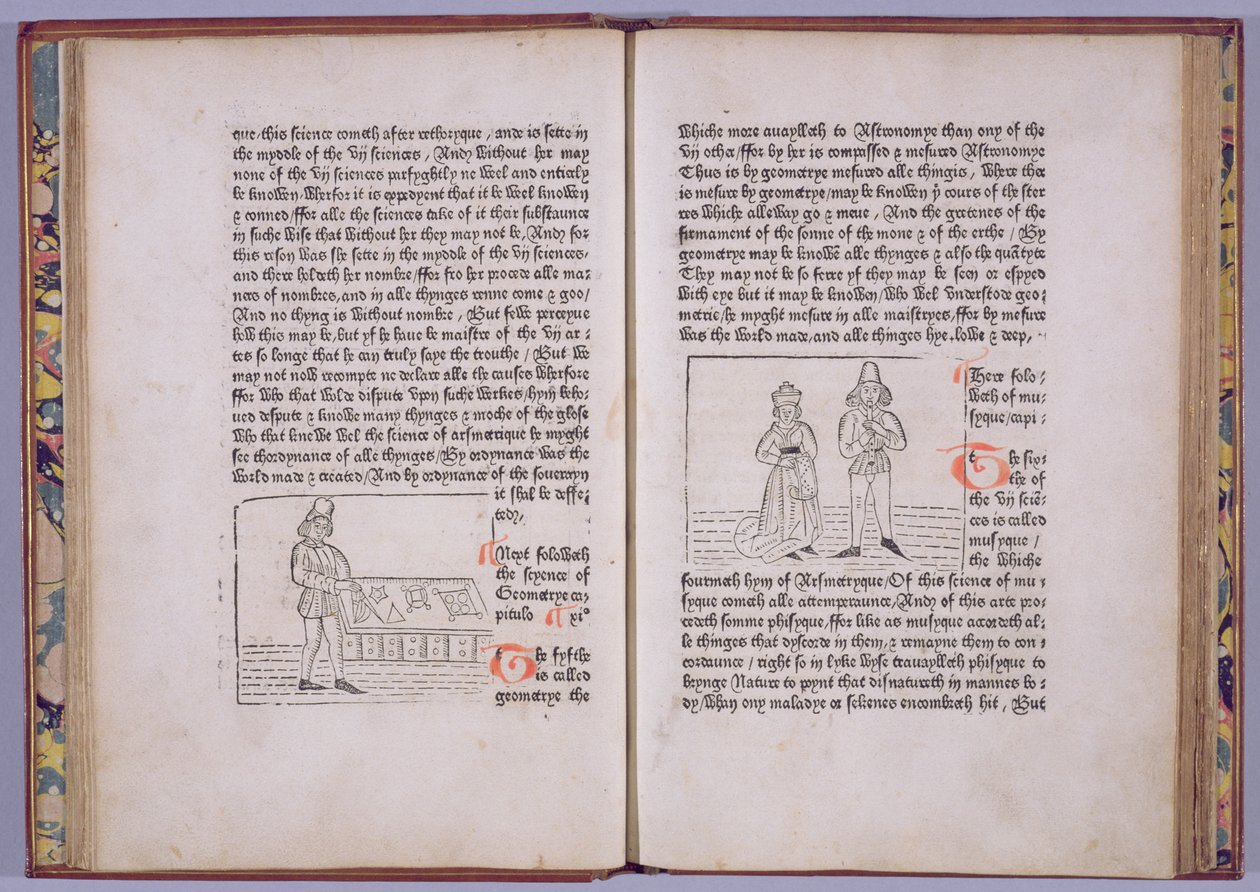 que/this science cometh after rethoryque, ande is sette in
the myddle of the vij sciences, And without her may
none of the vij sciences parfyghtly ne weel and entierly
be knowen, wherfor it is expedyent that it be wel knowen
& conned/ffor alle the sciences take of it their substaunce
in suche wise that without her they may not be, And for
this reson was she sette in the myddle of the vij sciences,
and there holdeth her nombre/ffor fro her procede alle ma-
ners of nombres, and in alle thynges renne come & goo/
And no thyng is without nombre, But fewe perceyue
how this may be, but yf he haue be maistre of the vij ar-
tes so longe that he can truly saye the trouthe/But we
may not now recompte ne declare alle the causes wherfore
ffor who that wolde dispute vpon suche werkes/hym beho-
ued despute & knowe many thynges & moche of the glose
who that knewe wel the science of arsmetrique he myght
see thordynance of alle thynges/By ordynance was the
world made & created/And by ordynance of the souerayn
it shal be deffe-
ted,
¶Next foloweth
the scyence of
Geometrye ca-
pitulo ¶ xi°
The fyfthe
is called
geometrye the
whiche more auaylleth to Astronomye than ony of the
vij other/ffor by her is compassed & mesured Astronomye
Thus is by geometrye mesured alle thingis, where ther
is mesure by geometrye/may be knowen ẏ cours of the ster
res whiche alleway go & meue, And the gretenes of the
firmament of the sonne of the mone & of the erthe/By
geometrye may be knowē alle thynges & also the quātyte
They may not be so ferre yf they may be seen or espyed
with eye but it may be knowen/who wel vnderstode geo-
metrie/he myght mesure in alle maistryes, ffor by mesure
was the world made, and alle thinges hye, lowe & deep,
¶Here folo-
weth of mu-
syque/capi-
The six-
the of
the vij sciē-
ces is called
musyque/
the whiche
fourmeth hym of Arsmetryque/Of this science of mu-
syque cometh alle attemperaunce, And of this arte pro-
cedeth somme phisyque, ffor like as musyque accordeth al-
le thinges that dyscorde in them, & remayne them to con-
cordaunce/right so in lyke wyse trauaylleth phisyque to
brynge Nature to poynt that disnatureth in mannes bo-
dy/whan ony maladye or sekenes encombreth hit, But